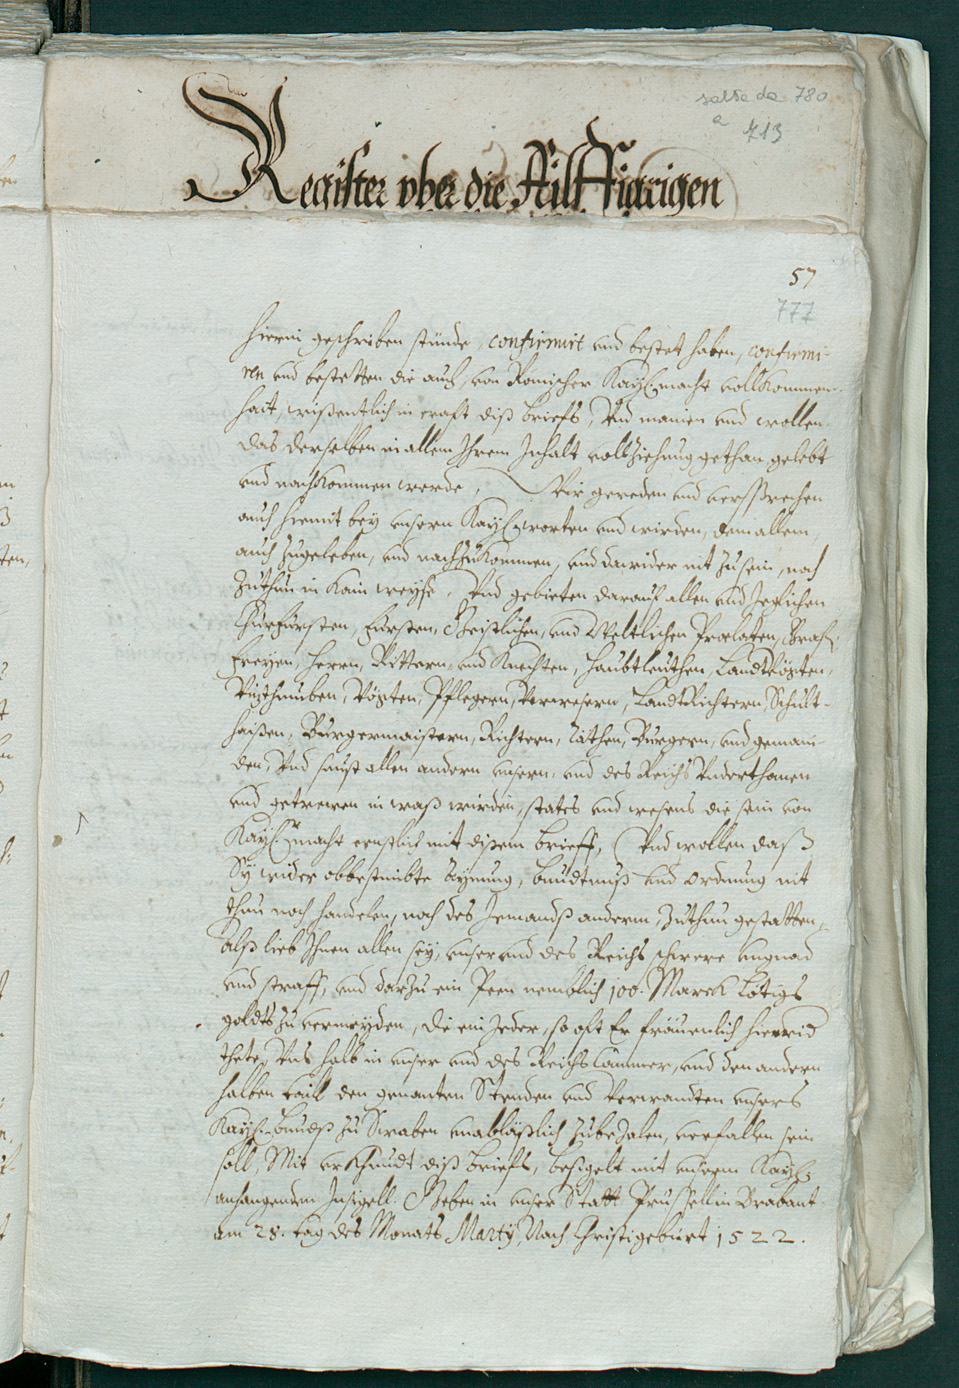 salta da 780
a 713
Register vber die Ailff Järigen
57
777
hierin geschriben stünde, confirmirt vnd bestet haben, confirmi-
ren vnd bestetten die auch, von Römischer Kays. macht vollkommen-
hait, wüßentlich in craft diß briefs, Vnd mainen vnd wollen
das derselben in allem Ihrem Inhalt vollziehung gethan gelebt
vnd nachkommen werde, Wir gereden vnd versprechen
auch hiemit bey vnsern Kays. worten vnd wirden, dem allem,
auch zugeleben, vnd nachzukommen, vnd dawider nit zusein, noch
zuthun in kain weyse. Vnd gebieten darauf allen vnd Jeglichen
Churfürsten, Fürsten, Geistlichen, vnd Weltlichen Prælaten, Graf,
Freyen, Herrn, Rittern, vnd Knechten, Haubtleuthen, Landtvögten,
Vitzthumben, Vögten, Pflegern, Verwesern, LandtRichtern, Schult-
haißen, Burgermaistern, Richtern, Räthen, Burgern, vnd gemain-
den, Vnd sunst allen andern vnsern, vnd des Reichs Vnderthonen
vnd getrewen in waß wirden, states vnd wesens die sein von
Kays. macht ernstlich mit disem brieff, Vnd wollen daß
Sy wider obbestimbte Aynung, bundtnuß vnd ordnung nit
thun noch handelen, noch des Jemandß anderm, Zuthun gestatten,
alß lieb Ihnen allen sey, vnser vnd des Reichs schwere vngnad
vnd straff, vnd darzu ein Peen nemblich 100. Marck Lötigs
goldts zu vermeyden, die ein Jeder, so oft Er fräuenlich hierwid
thete, Vns halb in vnser vnd des Reichs Cammer, vnd den andern
halben tail den genanten Stenden vnd Verwandten vnsers
Kays. Bundß zu Swaben vnableßlich zubezalen, verfallen sein
soll, Mit vrkhundt diß briefs, besigelt mit vnserm Kays.
anhangendem Insigell. Geben in vnser Statt Prüssell in Brabant
am 28. tag des Monats Martÿ, Nach Christi gebürt 1522.